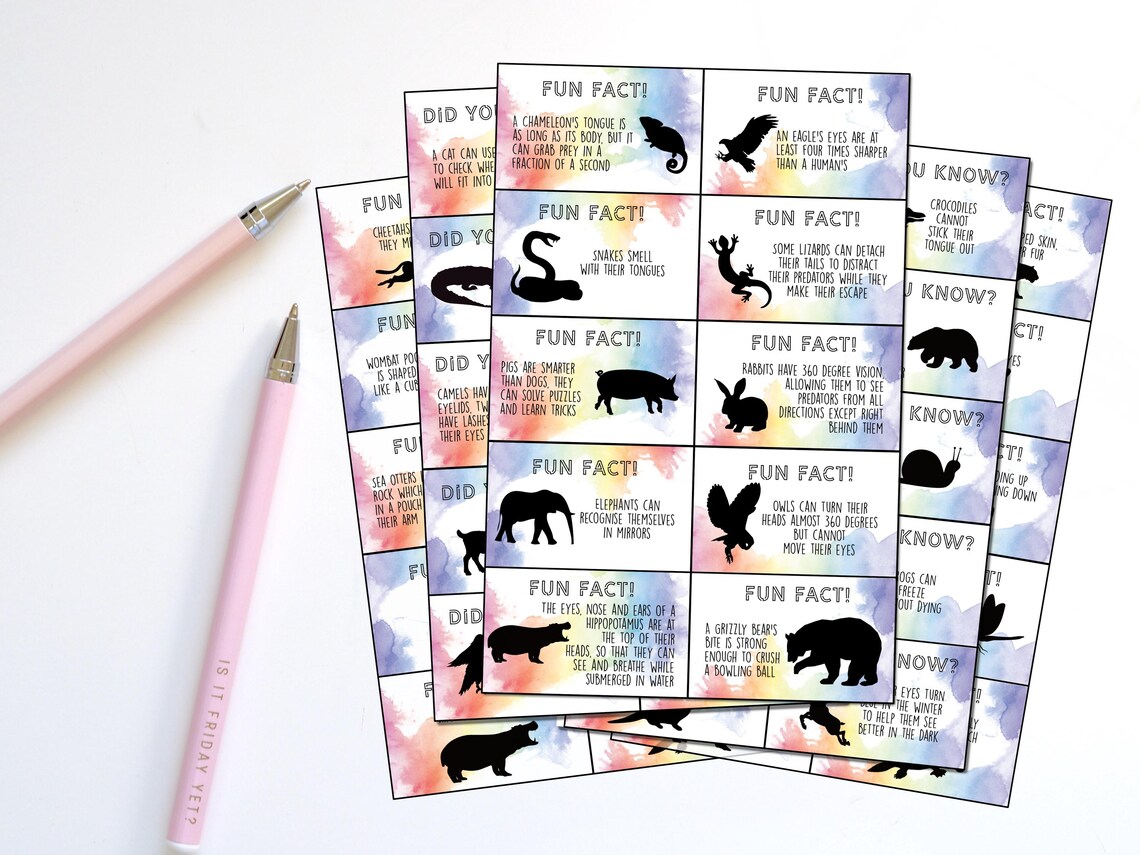 FUN FACT!
A CHAMELEON'S TONGUE IS
AS LONG AS ITS BODY, BUT IT
CAN GRAB PREY IN A
FRACTION OF A SECOND
FUN FACT!
AN EAGLE'S EYES ARE AT
LEAST FOUR TIMES SHARPER
THAN A HUMAN'S
FUN FACT!
SNAKES SMELL
WITH THEIR TONGUES
FUN FACT!
SOME LIZARDS CAN DETACH
THEIR TAILS TO DISTRACT
THEIR PREDATORS WHILE THEY
MAKE THEIR ESCAPE
FUN FACT!
PIGS ARE SMARTER
THAN DOGS, THEY
CAN SOLVE PUZZLES
AND LEARN TRICKS
FUN FACT!
RABBITS HAVE 360 DEGREE VISION,
ALLOWING THEM TO SEE
PREDATORS FROM ALL
DIRECTIONS EXCEPT RIGHT
BEHIND THEM
FUN FACT!
ELEPHANTS CAN
RECOGNISE THEMSELVES
IN MIRRORS
FUN FACT!
OWLS CAN TURN THEIR
HEADS ALMOST 360 DEGREES
BUT CANNOT
MOVE THEIR EYES
FUN FACT!
THE EYES, NOSE AND EARS OF A
HIPPOPOTAMUS ARE AT
THE TOP OF THEIR
HEADS, SO THAT THEY CAN
SEE AND BREATHE WHILE
SUBMERGED IN WATER
FUN FACT!
A GRIZZLY BEAR'S
BITE IS STRONG
ENOUGH TO CRUSH
A BOWLING BALL
DID YOU
A CAT CAN USE
TO CHECK WHE
WILL FIT INTO
DID YO
DID YO
CAMELS HAV
EYELIDS, TW
HAVE LASHES
THEIR EYES
DID Y
DID
FUN
CHEETAHS
THEY M
FUN
WOMBAT POO
IS SHAPED
LIKE A CUB
FU
SEA OTTERS
ROCK WHICH
IN A POUCH
THEIR ARM
FU
F
OU KNOW?
CROCODILES
CANNOT
STICK THEIR
TONGUE OUT
U KNOW?
KNOW?
KNOW?
OGS CAN
FREEZE
OUT DYING
KNOW?
EYES TURN
IN THE WINTER
TO HELP THEM SEE
BETTER IN THE DARK
ACT!
PED SKIN,
R FUR
CT!
YES
T!
DING UP
NG DOWN
T!
!
LY
CH
IS IT FRIDAY YET?